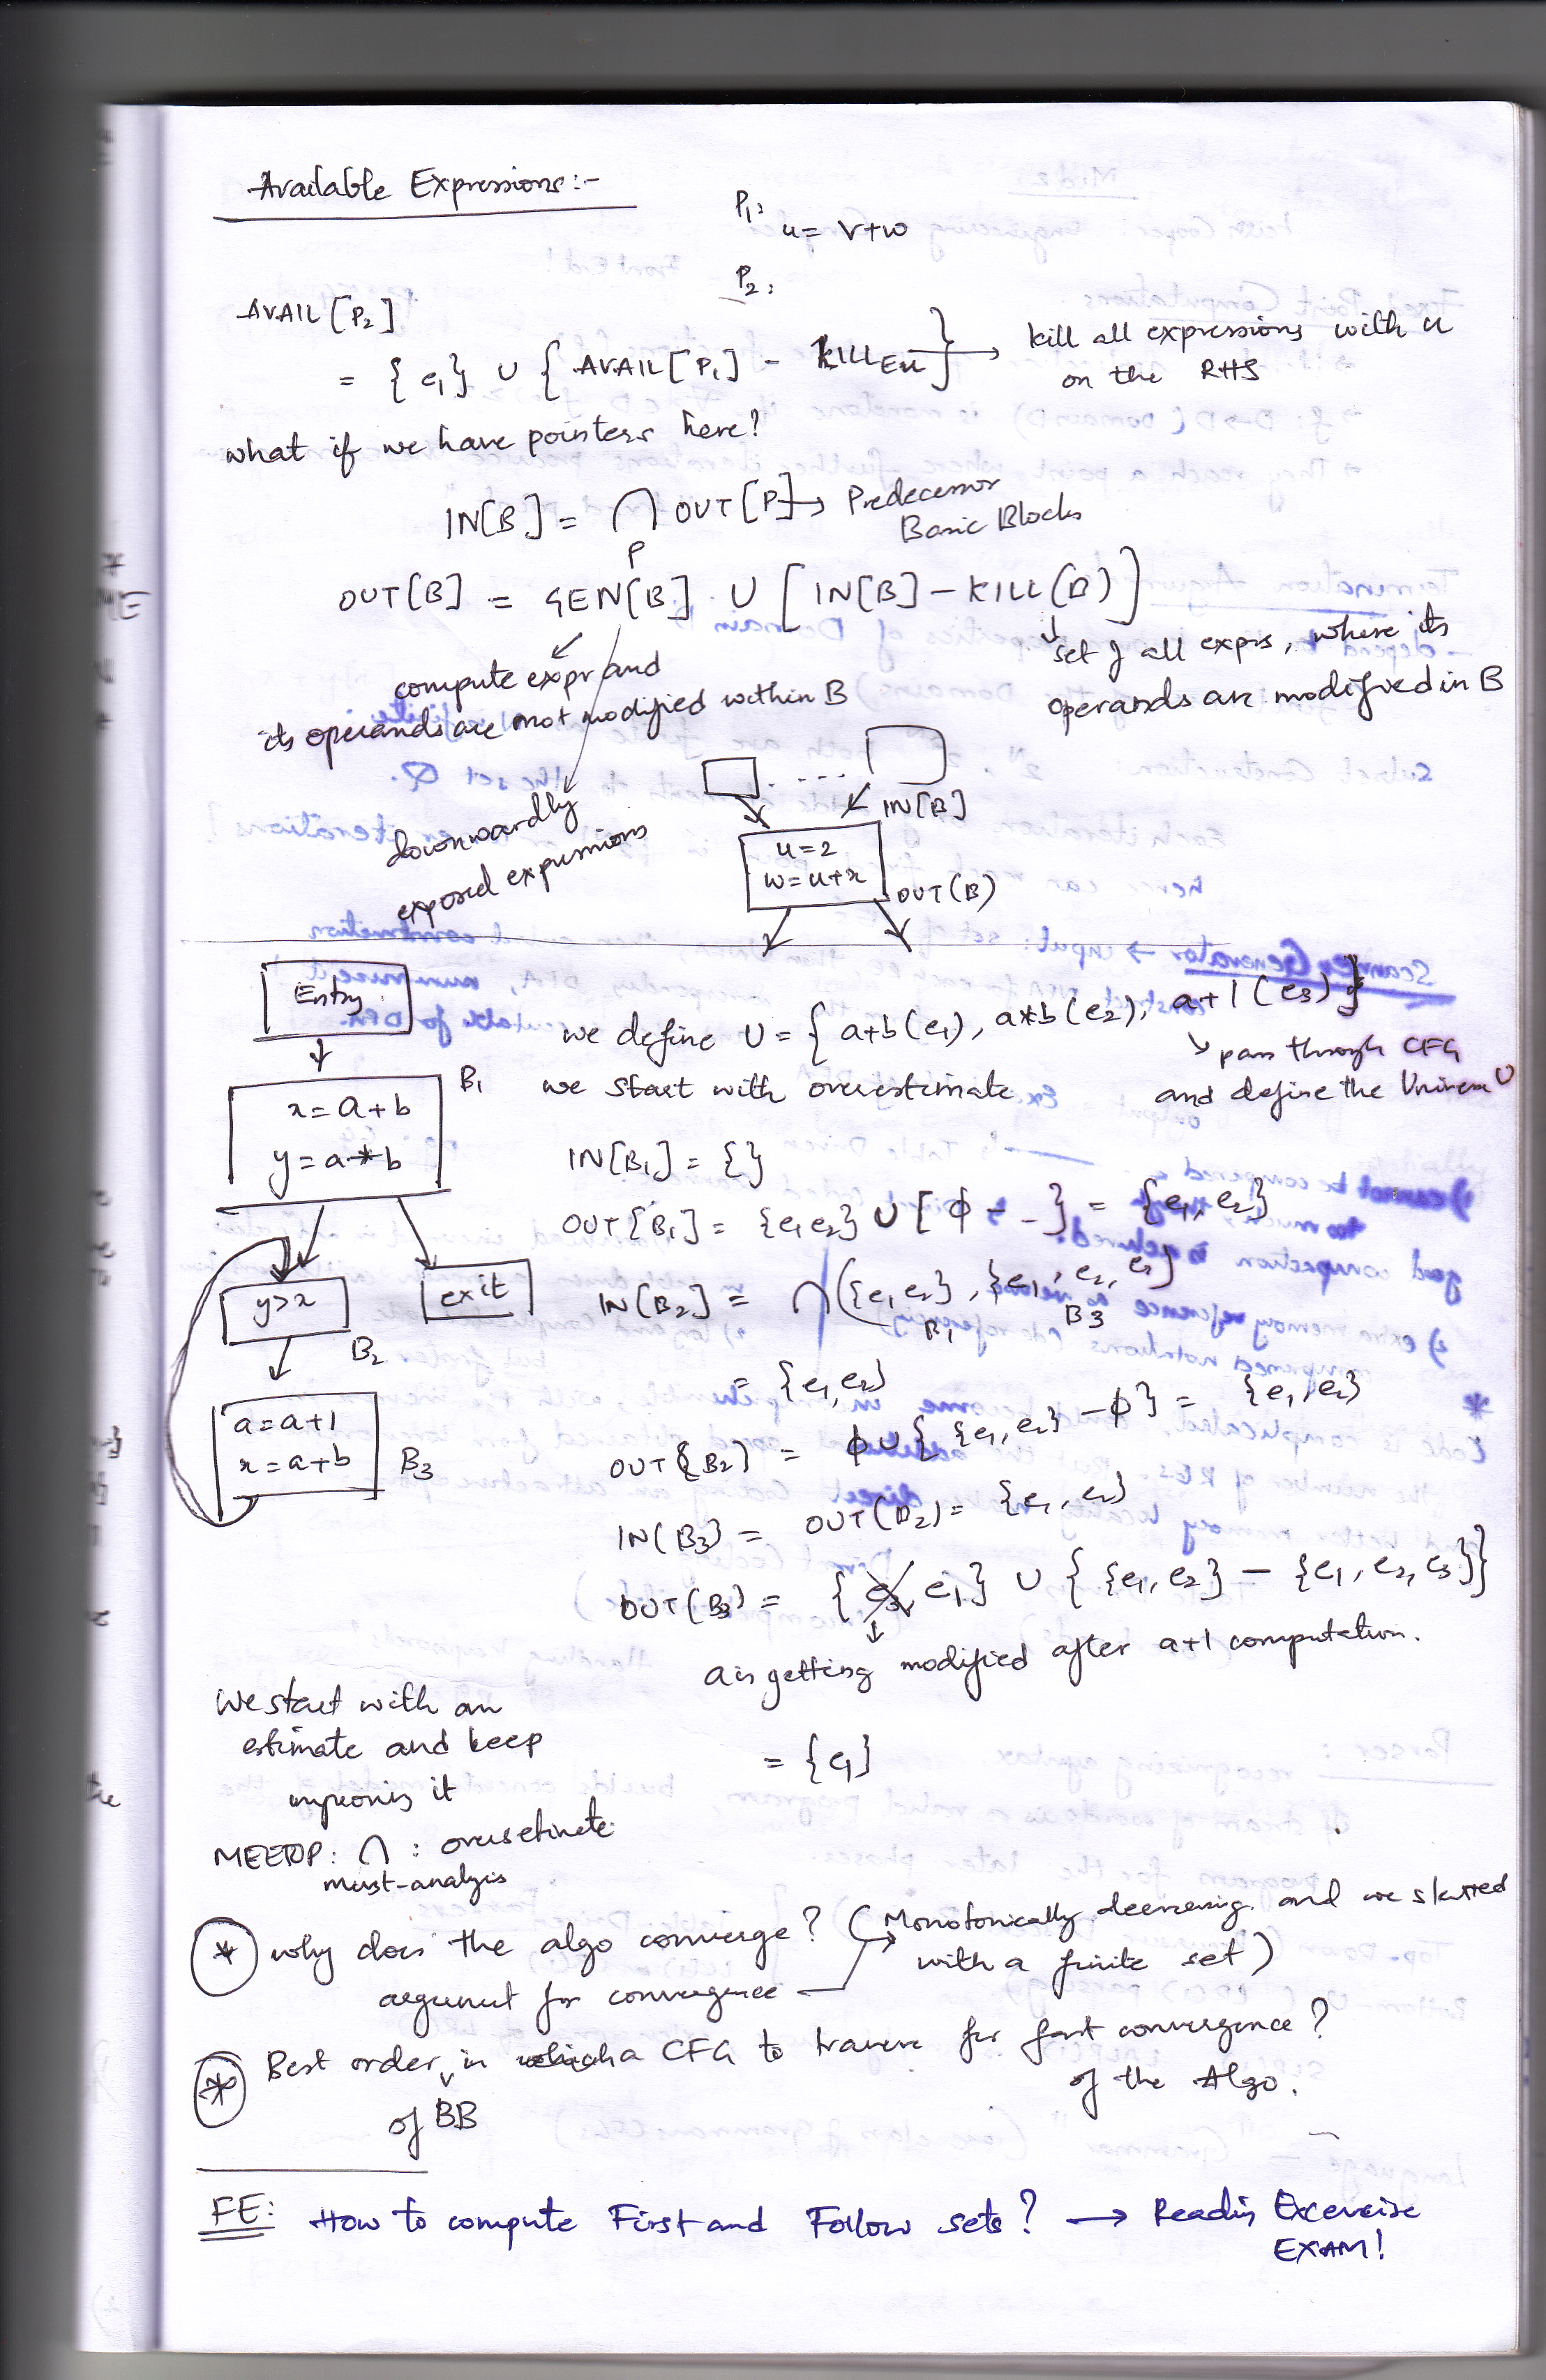 Available Expressions:-
P1:
u = v+w
P2:
AVAIL [P2]
= { e1 } ∪ { AVAIL [P1] - KILL Eu } → kill all expressions with u
on the RHS
what if we have pointers here?
IN[B] = ∩ OUT[P] → Predecessor
Basic Blocks
P
OUT[B] = GEN[B] ∪ [ IN[B] - KILL(B) ]
compute expr and
its operands are not modified within B
set of all exprs, where its
operands are modified in B
downwardly
exposed expressions
....
IN[B]
u=2
w=u+x
OUT(B)
Entry
we define U = { a+b (e1), a*b (e2), a+1 (e3) }
pass through CFG
and define the Universe U
we start with overestimate
B1
x = a+b
y = a*b
IN[B1] = {}
OUT[B1] = {e1 e2} ∪ [ ϕ - - ] = {e1, e2}
y>x
B2
exit
IN(B2] = ∩ ({e1 e2}, {e1, e2, e3}
B1 B3
= {e1, e2}
OUT(B2) = ϕ ∪ { {e1, e2} - ϕ } = {e1, e2}
a=a+1
x=a+b
B3
IN(B3) = OUT(B2) = {e1, e2}
OUT(B3) = { e3, e1 } ∪ { {e1, e2} - {e1, e2, e3} }
a is getting modified after a+1 computation.
= {e1}
We start with an
estimate and keep
improving it
MEETOP: ∩ : overestimate
must-analysis
* why does the algo converge? ( Monotonically decreasing and we started
with a finite set)
argument for convergence
* Best order in which a CFG to traverse for fast convergence?
of BB
of the Algo.
FE: How to compute First and Follow sets? → Reading Excercise
EXAM!